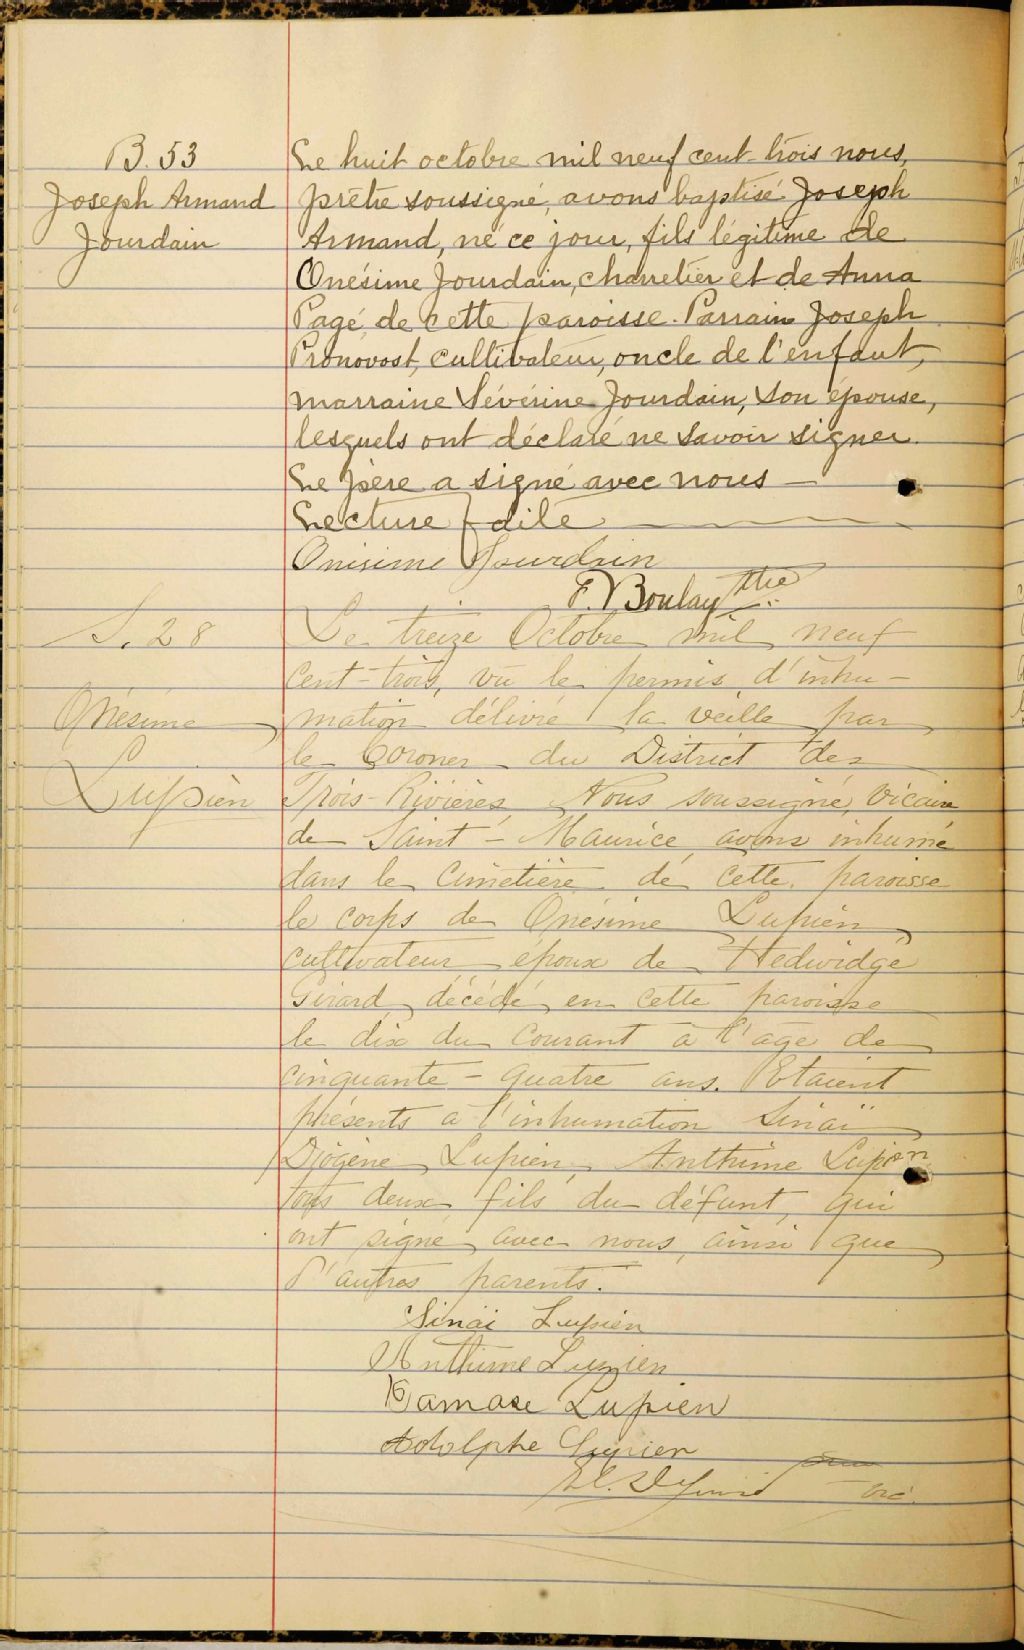 B. 53
Joseph Armand
Jourdain
Le huit octobre mil neuf cent-trois nous,
prêtre soussigné, avons baptisé Joseph
Armand, né ce jour, fils légitime de
Onésime Jourdain, charretier et de Anna
Pagé de cette paroisse. Parrain Joseph
Pronovost, cultivateur, oncle de l'enfant,
marraine Sévérine Jourdain, son épouse,
lesquels ont déclaré ne savoir signer.
Le père a signé avec nous —
Lecture faite
Onisime Jourdain
F. Boulay ptre
S. 28
Onésime
Lupien
Le treize Octobre mil neuf
cent-trois, vu le permis d'inhu-
mation délivré la veille par
le Coroner du District des
Trois-Rivières, Nous soussigné, Vicaire
de Saint-Maurice, avons inhumé
dans le Cimetière de cette paroisse
le corps de Onésime Lupien,
cultivateur époux de Hedwidge
Girard, décédé en cette paroisse
le dix du courant à l'age de
cinquante-quatre ans. Etaient
présents a l'inhumation Sinaï
Diogène Lupien, Anthime Lupien
tous deux fils du défunt, qui
ont signé avec nous, ainsi que
d'autres parents.
Sinai Lupien
Anthime Lupien
Damase Lupien
Adolphe Lupien